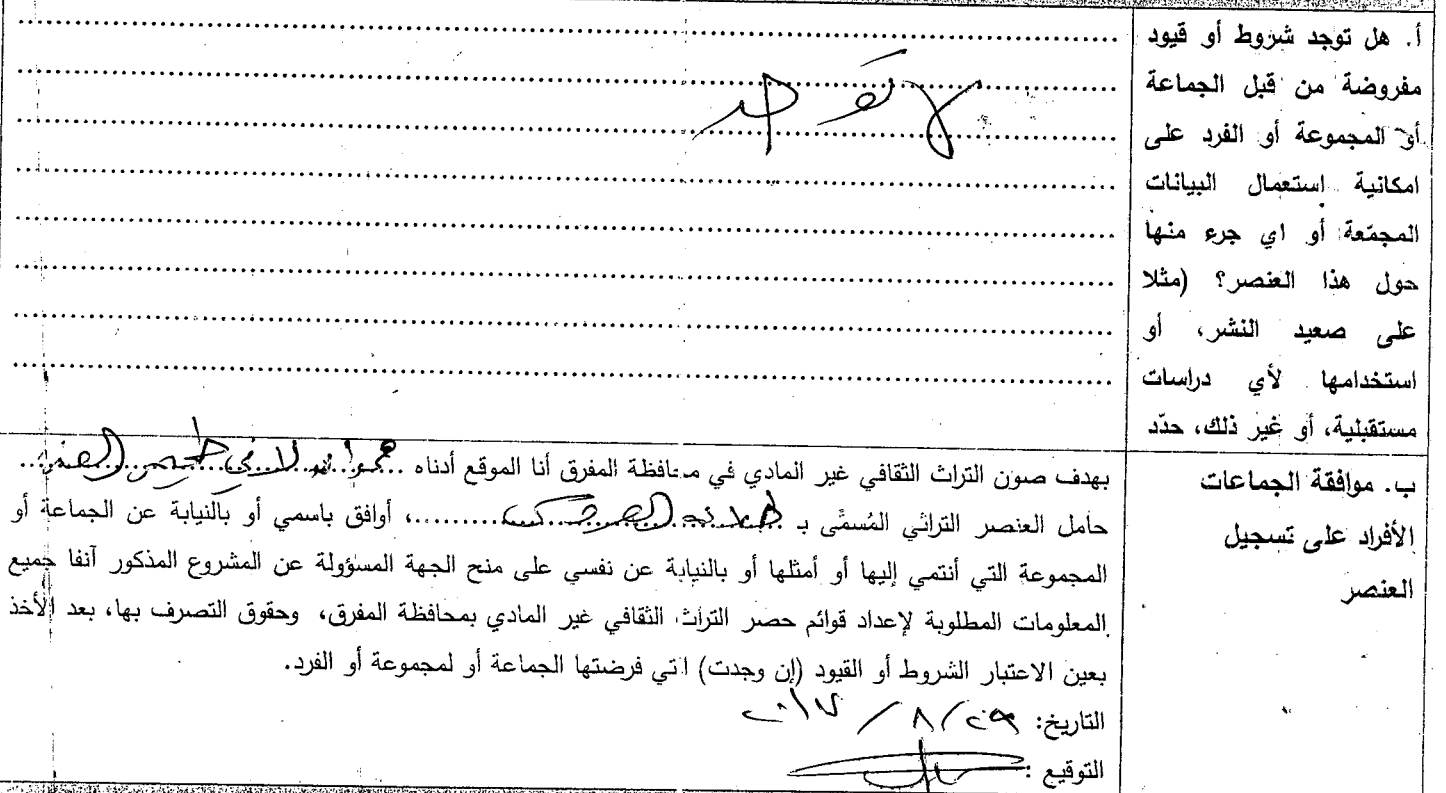 أ. هل توجد شروط أو قيود
مفروضة من قبل الجماعة
أو المجموعة أو الفرد على
امكانية إستعمال البيانات
المجمّعة أو اي جرء منها
حول هذا العنصر؟ (مثلا
على صعيد النشر، أو
استخدامها لأي دراسات
مستقبلية، أو غير ذلك، حدّد
لا توجد
ب. موافقة الجماعات
الأفراد على تسجيل
العنصر
بهدف صون التراث الثقافي غير المادي في محافظة المفرق أنا الموقع أدناه
حامل العنصر التراثي المُسمَّى بـ ..........، أوافق باسمي أو بالنيابة عن الجماعة أو
المجموعة التي أنتمي إليها أو أمثلها أو بالنيابة عن نفسي على منح الجهة المسؤولة عن المشروع المذكور آنفا جميع
المعلومات المطلوبة لإعداد قوائم حصر التراث الثقافي غير المادي بمحافظة المفرق، وحقوق التصرف بها، بعد الأخذ
بعين الاعتبار الشروط أو القيود (إن وجدت) اتي فرضتها الجماعة أو لمجموعة أو الفرد.
التاريخ: ٢٩/ ٨ / ٢٠١٧
التوقيع :